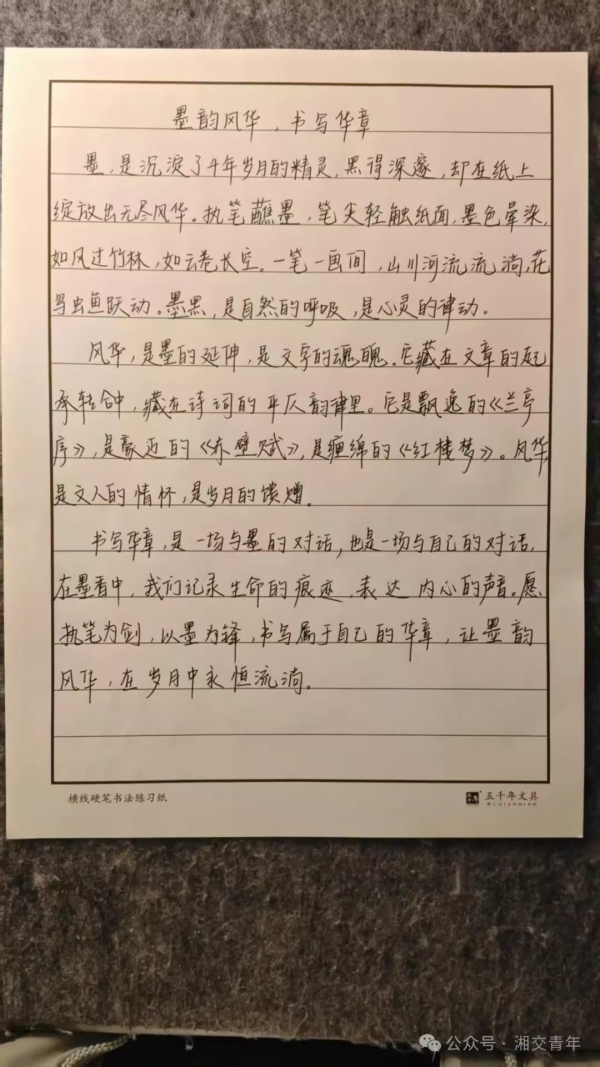 墨韵风华，书写华章
墨，是沉淀了千年岁月的精灵，黑得深邃，却在纸上
绽放出无尽风华。执笔蘸墨，笔尖轻触纸面，墨色晕染，
如风过竹林，如云卷长空。一笔一画间，山川河流流淌，花
鸟虫鱼跃动。墨黑，是自然的呼吸，是心灵的律动。
风华，是墨的延伸，是文字的魂魄。它藏在文章的起
承转合中，藏在诗词的平仄韵律里。它是飘逸的《兰亭
序》，是豪迈的《赤壁赋》，是缠绵的《红楼梦》。风华，
是文人的情怀，是岁月的馈赠。
书写华章，是一场与墨的对话，也是一场与自己的对话。
在墨香中，我们记录生命的痕迹，表达内心的声音。愿
执笔为剑，以墨为锋，书写属于自己的华章，让墨韵
风华，在岁月中永恒流淌。
横线硬笔书法练习纸
五千年文具
WUQIANNIAN
公众号·湘交青年